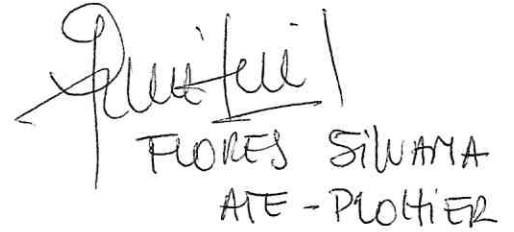 FLORES SILVANA
ATE - PLOTTIER